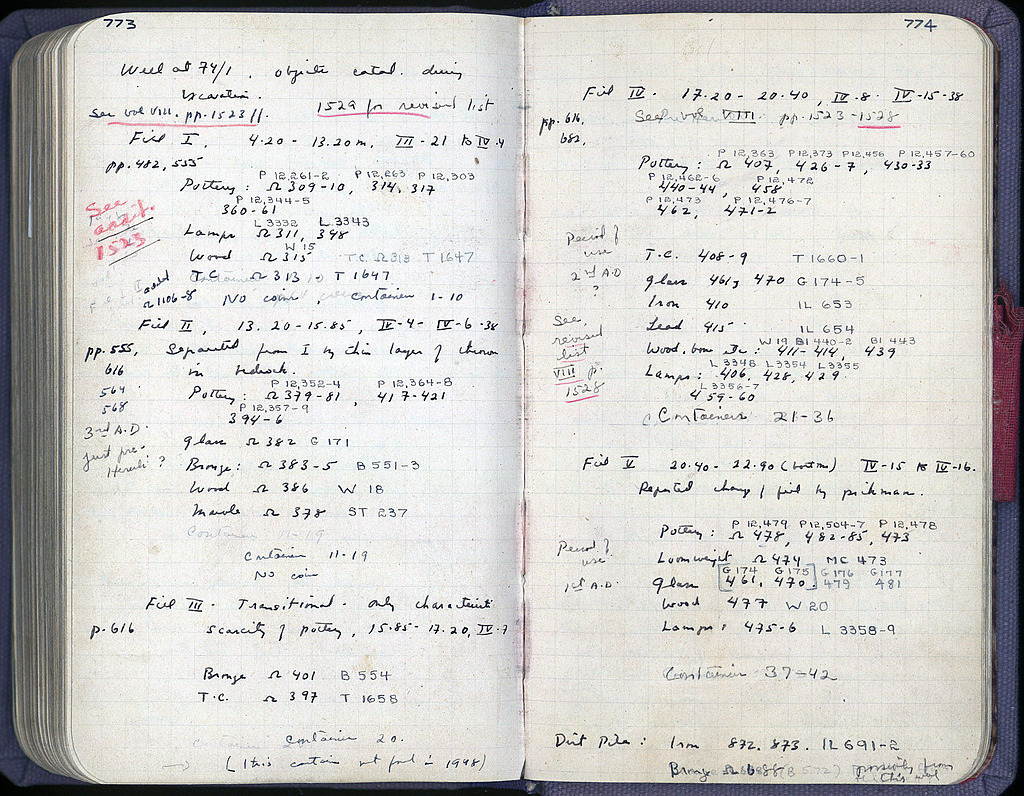 773
Well at 74/1. objects catal. during
Excavation.
See vol VIII. pp. 1523 ff. 1529 for revised list
Fill I, 4.20 - 13.20 m. III-21 to IV-4
pp. 482, 555
P 12,261-2 P 12,263 P 12,303
Pottery: Ω 309-10, 314, 317
P 12,344-5
360-61
See
addit.
1523
L 3332 L 3343
Lamps Ω 311, 348
W 15
Wood Ω 315 T.C. Ω 313 T 1647
T.C. Ω 313 T 1647
added
Ω 1106-8 No coins, Container 1-10
Fill II, 13.20-15.85, IV-4- IV-6-38
pp. 555, Separated from I by thin layer of
616 in bedrock.
564
568
P 12,352-4 P 12,364-8
Pottery: Ω 379-81, 417-421
P 12,357-9
394-6
3rd A.D.
just pre-
Heruli ?
Glass Ω 382 G 171
Bronze: Ω 383-5 B 551-3
Wood Ω 386 W 18
Marble Ω 378 ST 237
Container 11-19
Container 11-19
No coin
Fill III - Transitional - only characteristic
p. 616 scarcity of pottery, 15.85-17.20, IV-7
Bronze Ω 401 B 554
T.C. Ω 397 T 1658
Container 20.
(this container not found in 1948)
774
Fill IV. 17.20 - 20.40, IV-8- IV-15-38
pp. 616, See vol VIII. pp. 1523-1528
682,
P 12,363 P 12,373 P 12,456 P 12,457-60
Pottery: Ω 407, 426-7, 430-33
P 12,462-6 P 12,472
440-44, 458
P 12,473 P 12,476-7
462, 471-2
Period of
use
2nd A.D
?
T.C. 408-9 T 1660-1
Glass 461, 470 G 174-5
Iron 410 IL 653
Lead 415 IL 654
See,
revised
list
VIII p.
1528
W 19 BI 440-2 BI 443
Wood, bone etc: 411-414, 439
L 3348 L 3354 L 3355
Lamps: 406, 428, 429
L 3356-7
459-60
Containers 21-36
Fill V 20.40 - 22.90 (bottom) IV-15 to IV-16.
Reported change of fill by pickman.
P 12,479 P 12,504-7 P 12,478
Pottery: Ω 478, 482-85, 473
Period of
use
1st A.D.
Loomweight Ω 474 MC 473
G 174 G 175 G 176 G 177
Glass [461, 470] 479 481
Wood 477 W 20
Lamps: 475-6 L 3358-9
Container 37-42
Dirt Pile: Iron 872, 873. IL 691-2
Bronze Ω 688 (B 572) possibly from
this well